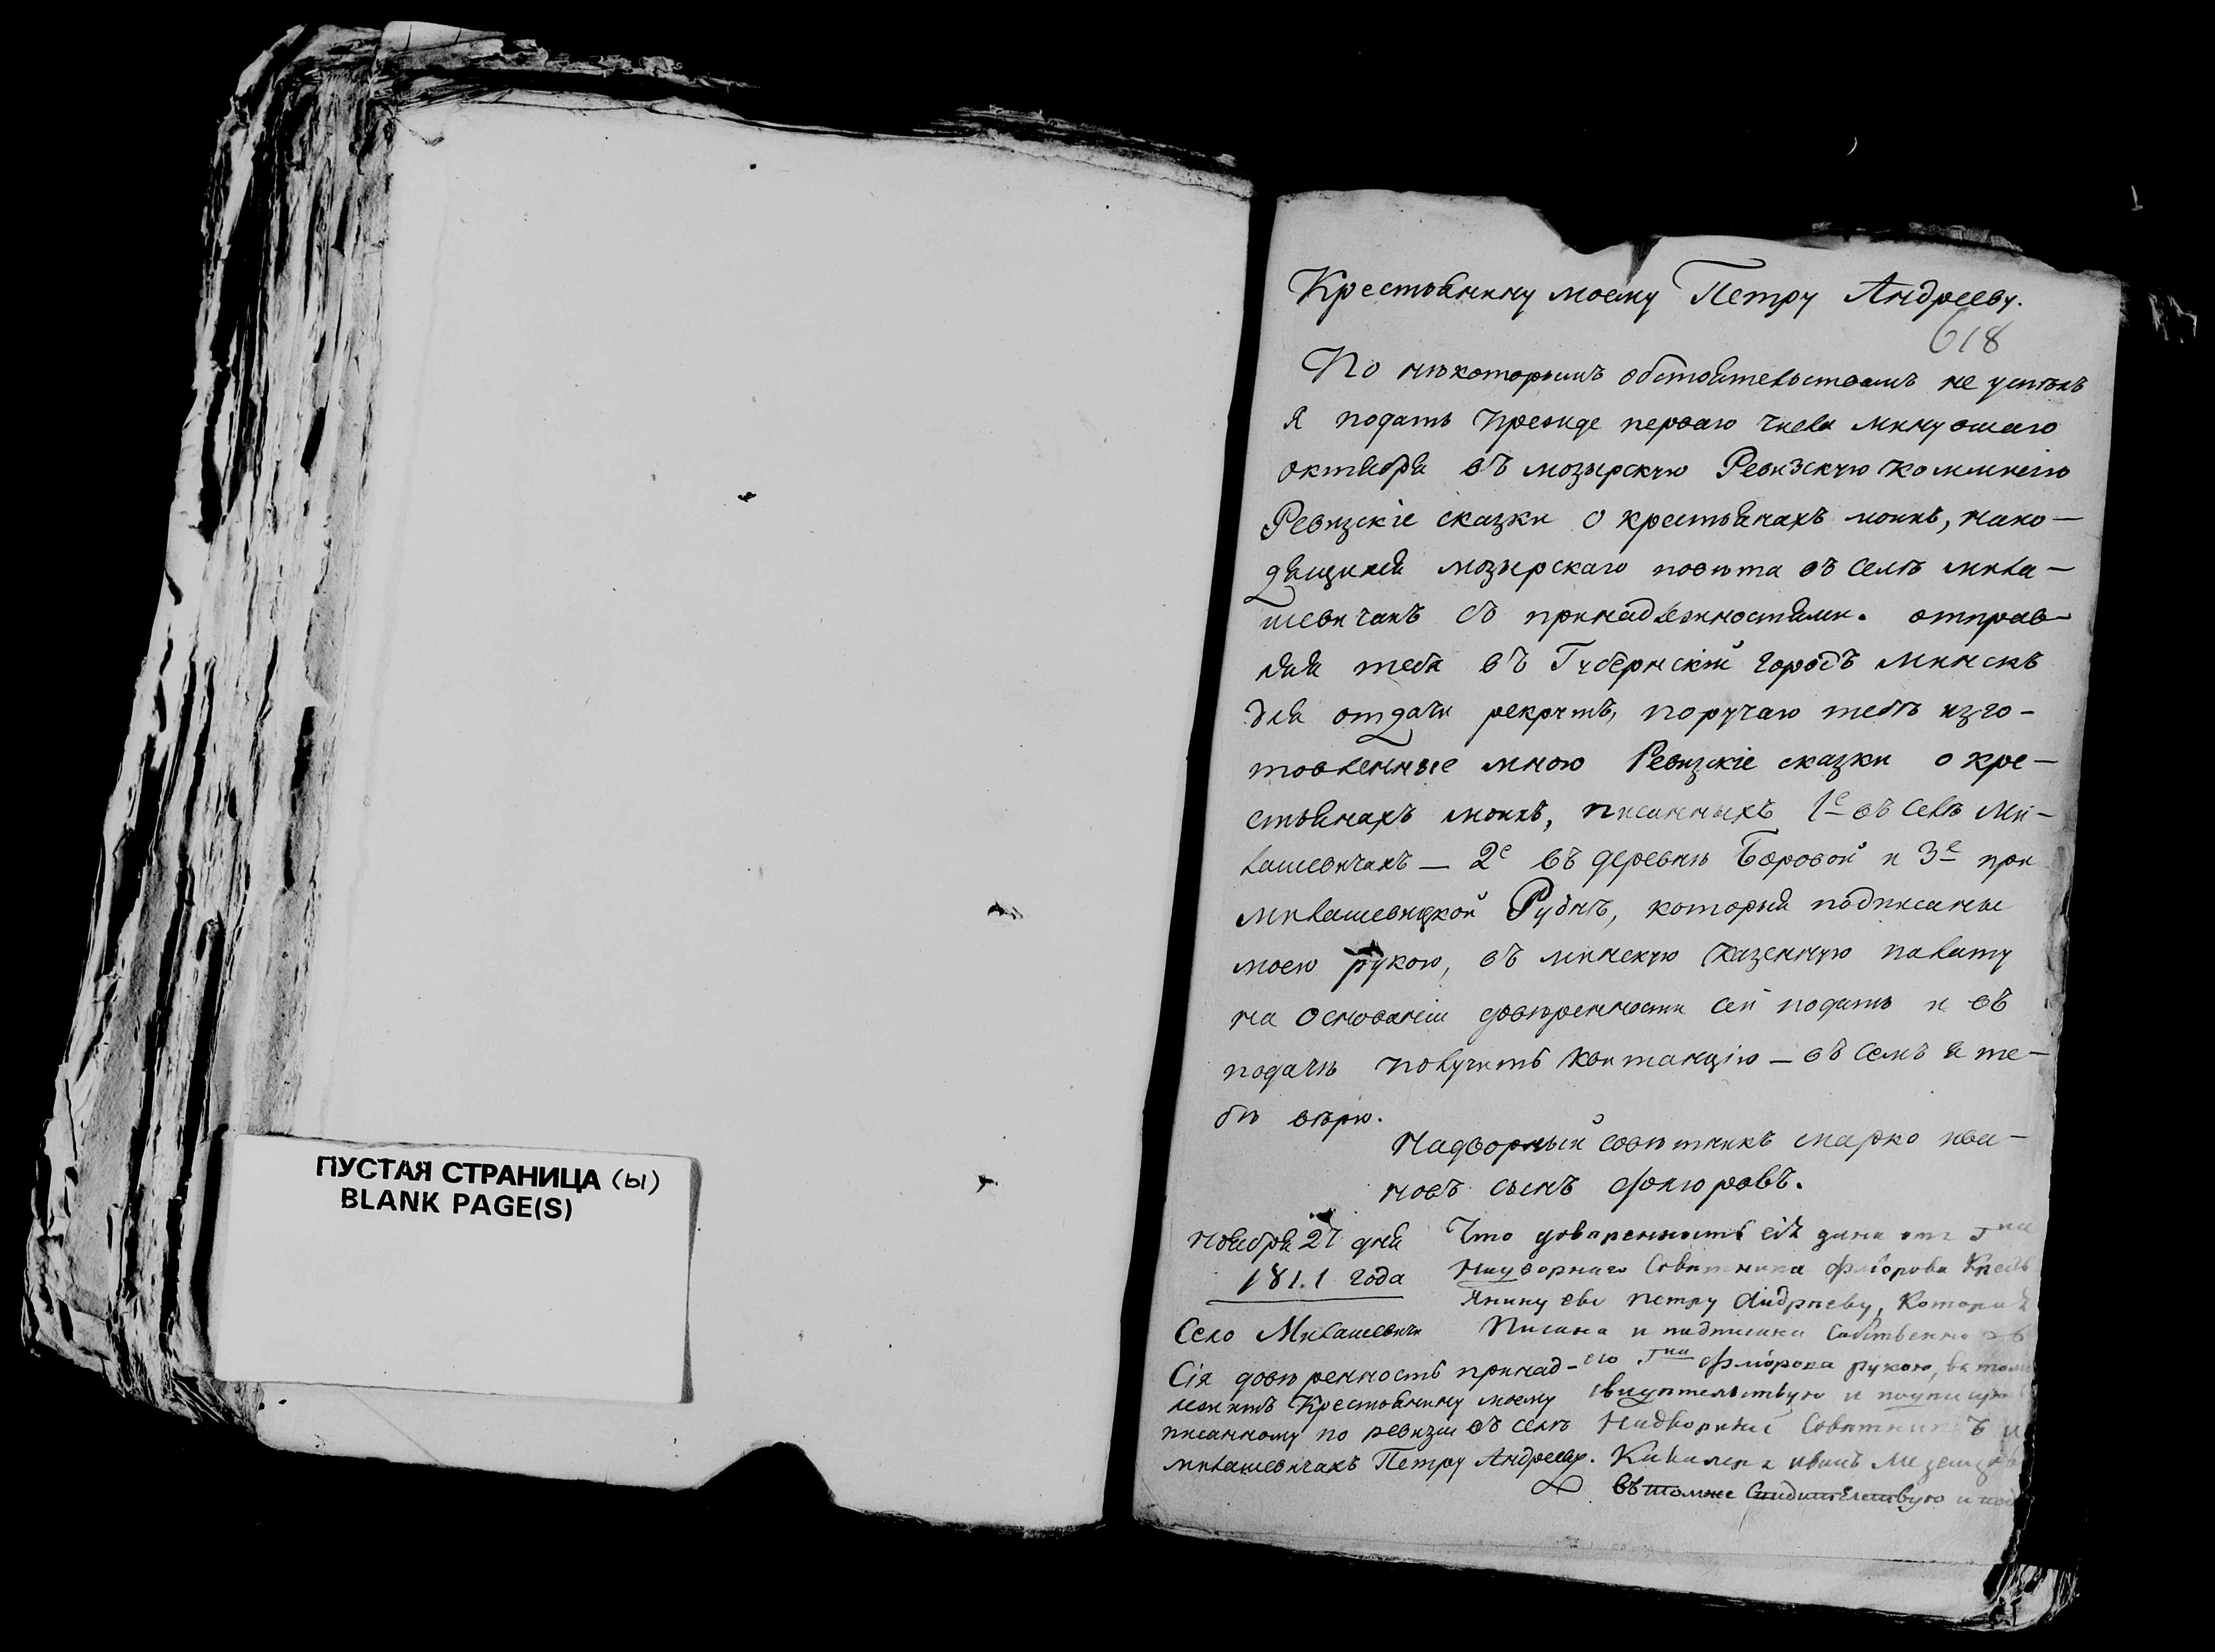 ПУСТАЯ СТРАНИЦА (ы)
BLANK PAGE(S)
Крестьянину моему Петру Андрееву.
618
По нѣкоторымъ обстоятельствамъ не успѣлъ
я подать прежде перваго числа минувшаго
октября въ мозырскую Ревизкую коммисію
Ревизскіе сказки о крестьянахъ моихъ, нахо-
дящихся мозырскаго повѣта въ селѣ Мила-
шевичахъ съ принадлежностями. отправ-
ляя тебя въ Губернскій городъ Минскъ
для отдачи рекрутъ, поручаю тебѣ изго-
товленные мною Ревизскіе сказки о кре-
стьянахъ моихъ, писанныхъ 1е въ селѣ Ми-
лашевичахъ — 2е въ деревнѣ Боровой и 3е при
Милашевицкой Руднѣ, которыя подписаны
моею рукою, въ минскую казенную палату
на основаніи довѣренности сей подать и въ
подачѣ получить квитанцію — въ семъ я те-
бѣ вѣрю.
Надворный совѣтникъ Марко Ива-
новъ сынъ Флюровъ.
Ноября 27 дня
1811 года
Село Милашевичи
Сія довѣренность принад-
лежитъ Крестьянину моему
писанному по ревизіи въ селѣ
Милашевичахъ Петру Андрееву.
Что доверенность сія дана отъ Гна
Надворнаго Советника Флюрова Кресть
янину ево Петру Андрееву, Которая
Писана и подписана Собственно
его Гна Флюрова рукою, въ томъ
свидетельствую и подпис
Надворный Советникъ и
Кавалеръ Иванъ
въ томже Свидителствую и под